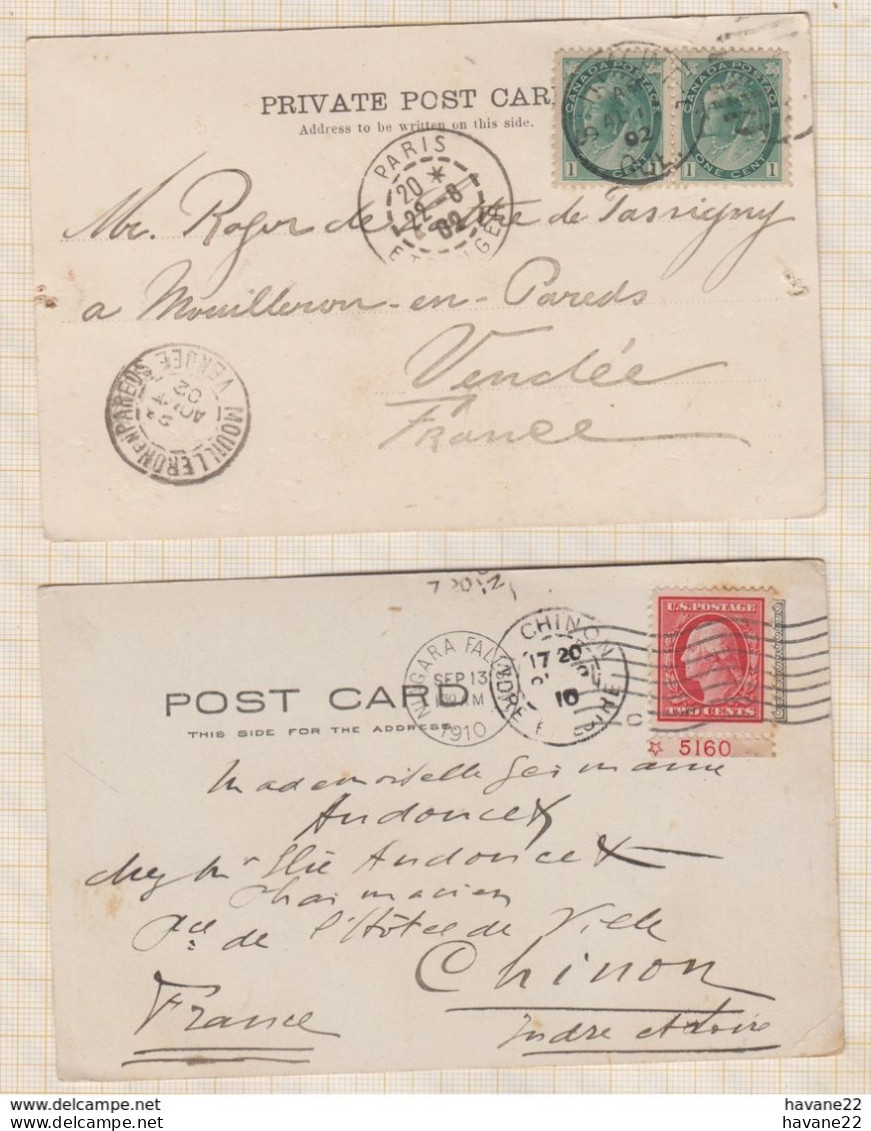 PRIVATE POST CAR
Address to be written on this side.
CANADA POSTAGE
1 CENT
CANADA POSTAGE
1 ONE CENT 1
02
QUE
PARIS
20 *
22-8
02
Mr. Roger de de Tassigny
à Mouilleron-en-Pareds
Vendée
France
MOUILLERON EN PAREDS
VENDÉE
AOUT
02
POST CARD
THIS SIDE FOR THE ADDRESS
NIAGARA FALLS
SEP 13
1910
CHINON
17 20
10
U.S. POSTAGE
TWO CENTS
5160
Mademoiselle Germaine
Andoncet
chez Mr Elie Andoncet
Pharmacien
Pce de l'Hôtel de Ville
Chinon
France
Indre et Loire
havane22
havane22
havane22
havane22